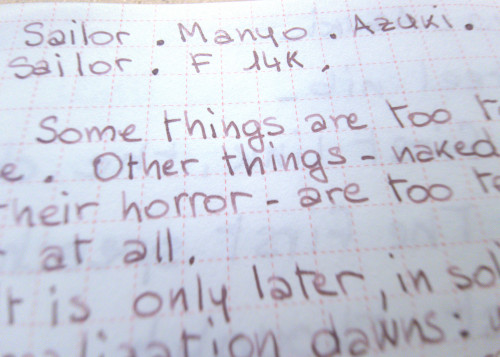 Sailor. Manyo. Azuki.
Sailor. F 14K.
Some things are too
e. Other things - naked
their horror - are too
at all.
is only later, in
dawns: